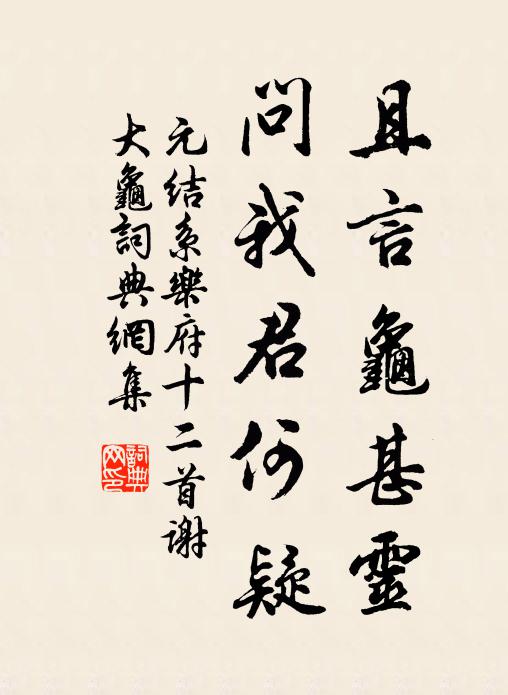 且言龜甚靈
問我君何疑
元結系樂府十二首謝
大龜詞典網集
詞典
网印